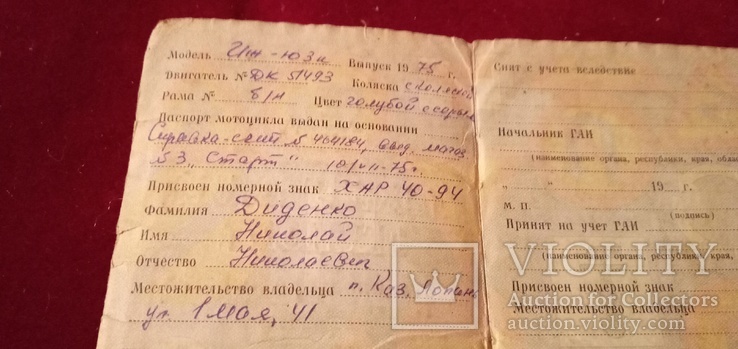 Модель Иж-Ю3к Выпуск 1975 г.
Двигатель № ДК 51493 Коляска с коляской
Рама № б/н Цвет голубой с серым
Паспорт мотоцикла выдан на основании
Справка-счёт № 464184, магаз.
№3 „Старт" 10/VII-75г.
Присвоен номерной знак ХАР 40-94
Фамилия Диденко
Имя Николай
Отчество Николаевич
Местожительство владельца п. Каз. Лопань
ул. 1 Мая, 41
Снят с учета вследствие
Начальник ГАИ
(наименование органа, республики, края, обла
„ “ 19 г.
М. П.
(подпись)
Принят на учет ГАИ
(наименование органа, республики, края,
Присвоен номерной знак
Местожительство владельца
VIOLITY
Auction for Collectors
auction.violity.com